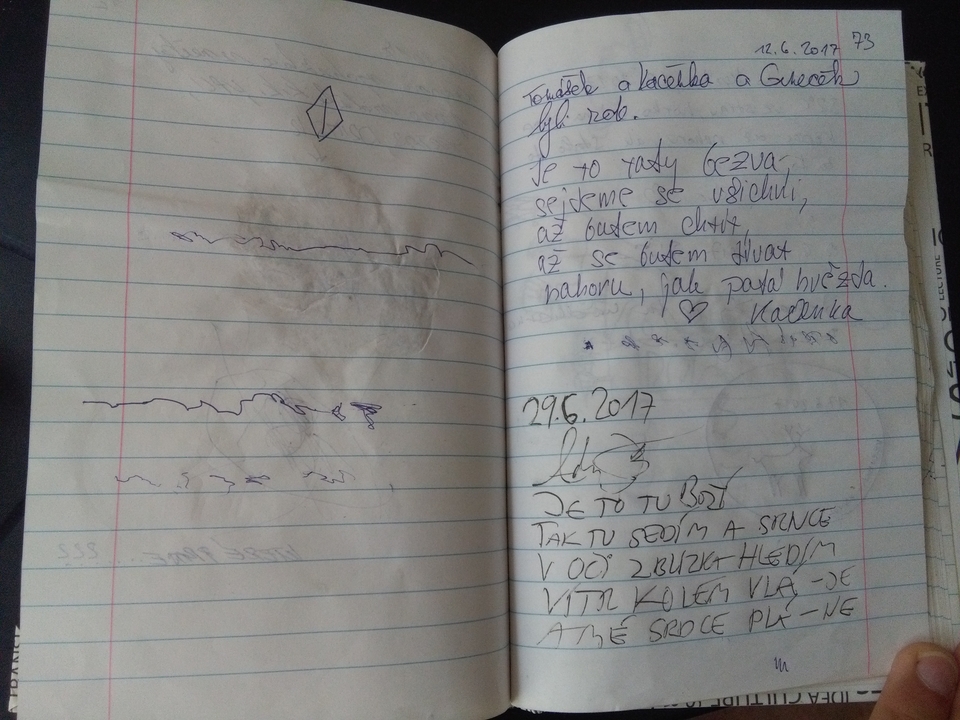 12.6.2017 73
Tomášek a Kačenka a
byli zde.
Je to taty bezva,
sejdeme se všichni,
až butem chtít,
až se butem tívat
nahoru, jak patá hvězda.
♡ Kačenka
29.6.2017
JE TO TU BOŽÍ
TAK TU SEDÍM A SRNCE
V OČÍ ZBLÍZKA HLEDÍM
VÍTR KOLEM VLÁ-JE
A MÉ SRDCE PLÁ-NE
IDEA CULTURE